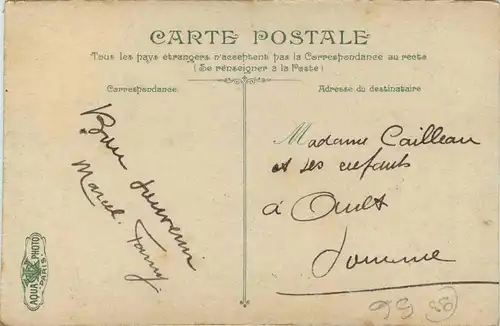 CARTE POSTALE
Tous les pays étrangers n'acceptent pas la Correspondance au recto
(Se renseigner à la Poste)
Correspondance
Adresse du destinataire
Bon souvenir
Marcel
Madame Cailleau
et ses enfants
à
Somme
AQUA PHOTO
PARIS